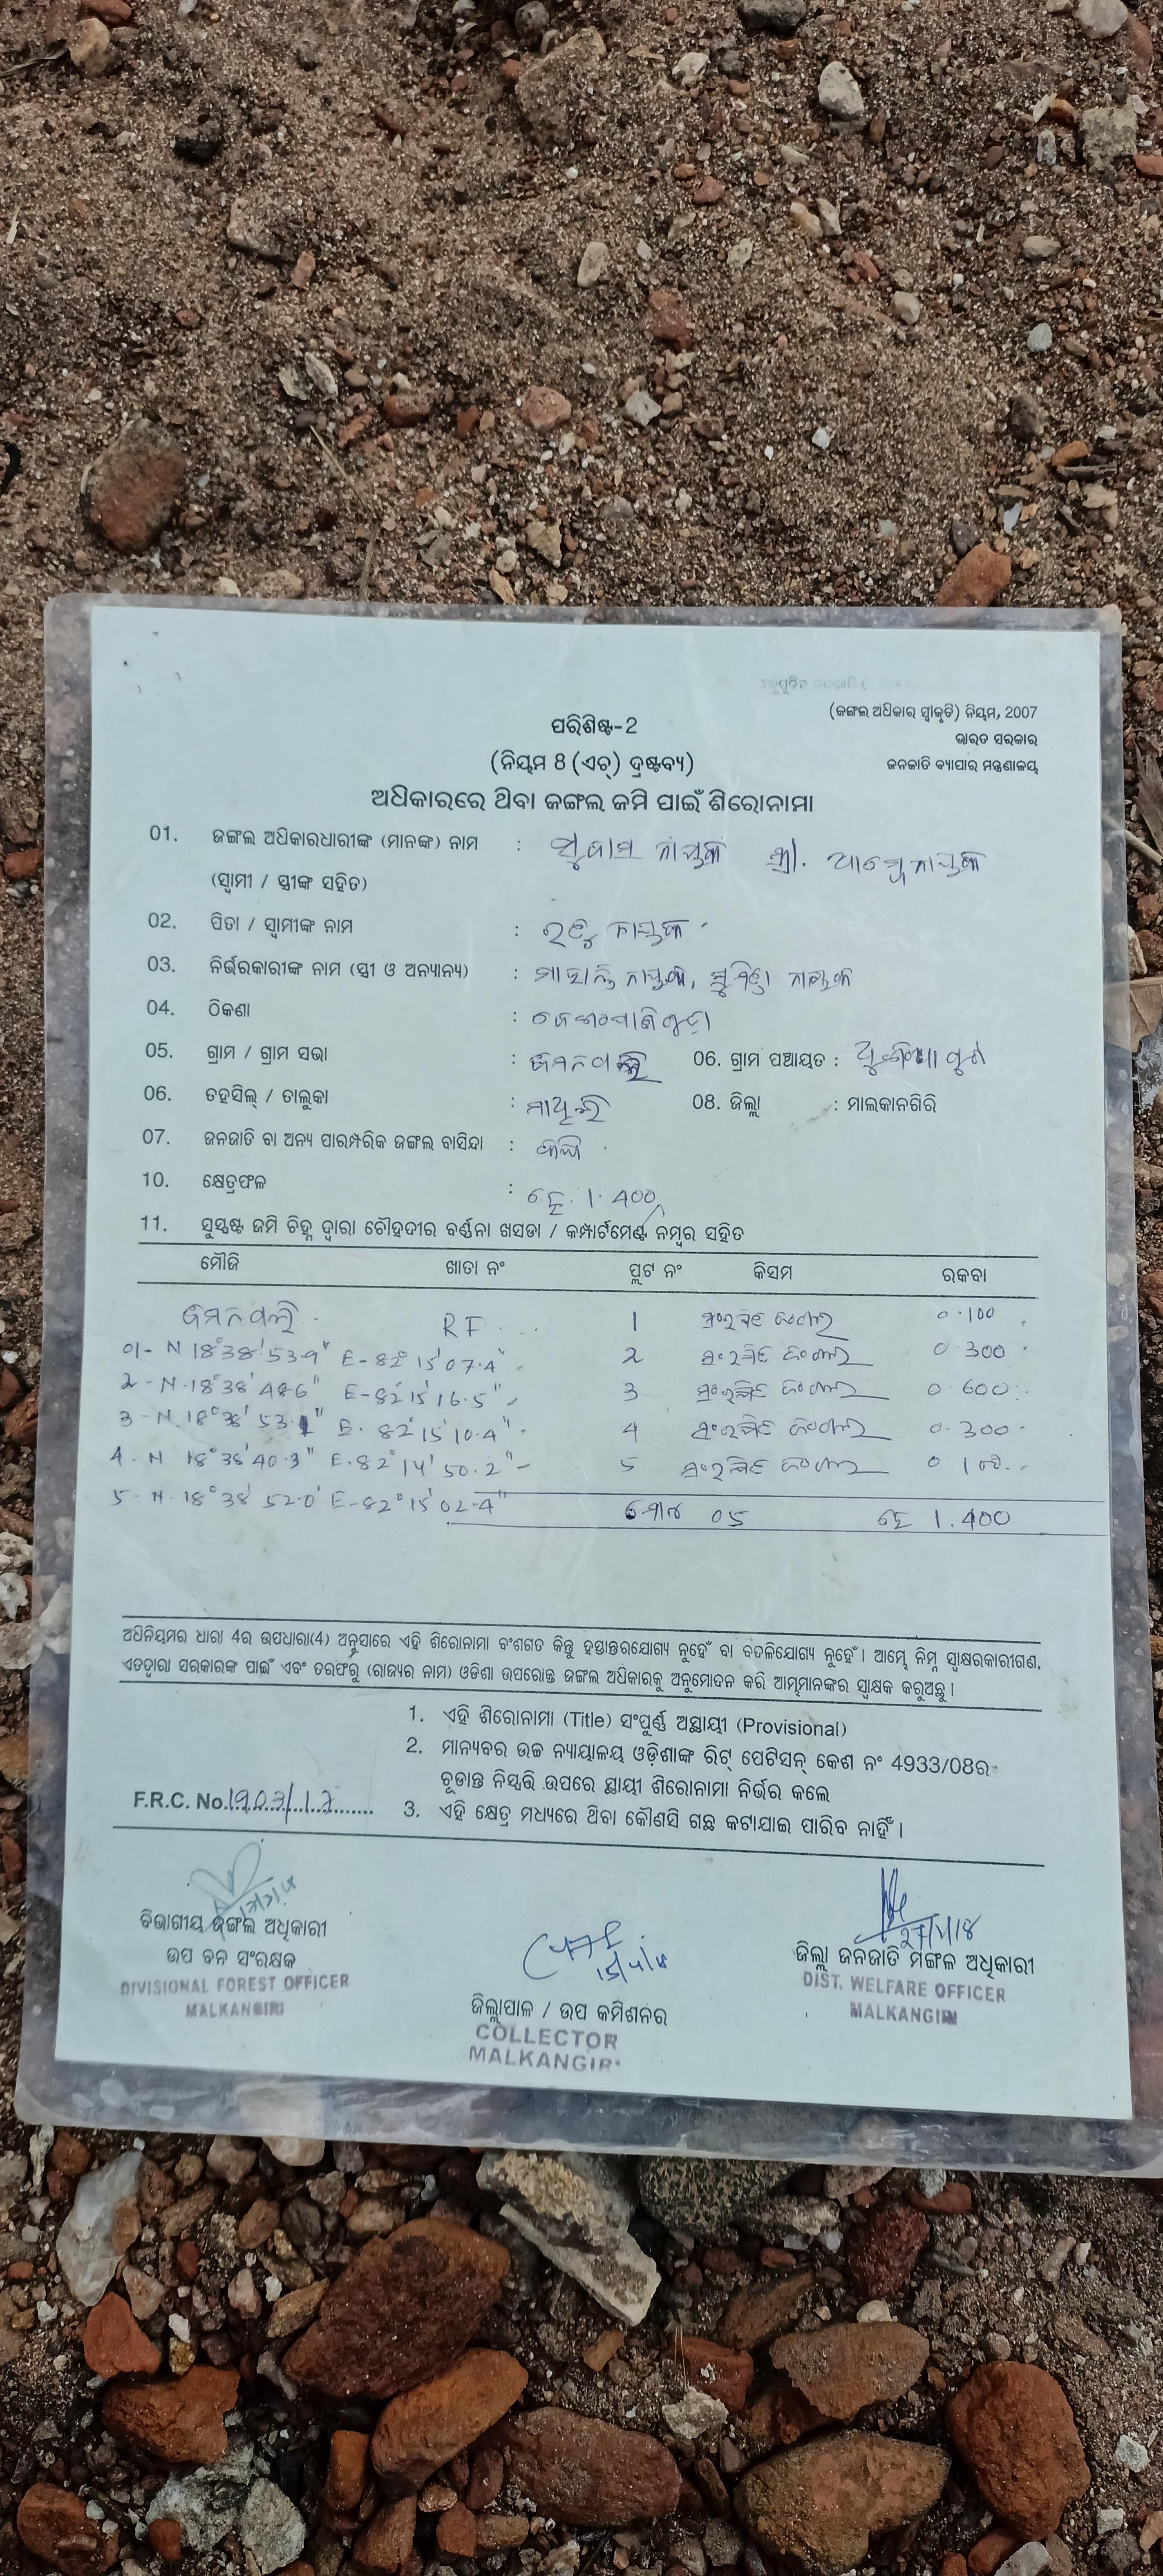 (ଜଙ୍ଗଲ ଅଧିକାର ସ୍ୱୀକୃତି) ନିୟମ, 2007
ଭାରତ ସରକାର
ଜନଜାତି ବ୍ୟାପାର ମନ୍ତ୍ରଣାଳୟ
ପରିଶିଷ୍ଟ-2
(ନିୟମ 8 (ଏଚ୍) ଦ୍ରଷ୍ଟବ୍ୟ)
ଅଧିକାରରେ ଥିବା ଜଙ୍ଗଲ ଜମି ପାଇଁ ଶିରୋନାମା
01. ଜଙ୍ଗଲ ଅଧିକାରଧାରୀଙ୍କ (ମାନଙ୍କ) ନାମ : ସୁଦାମ ନାୟକ ସ୍ତ୍ରୀ.
(ସ୍ୱାମୀ / ସ୍ତ୍ରୀଙ୍କ ସହିତ)
02. ପିତା / ସ୍ୱାମୀଙ୍କ ନାମ : ନାୟକ
03. ନିର୍ଭରକାରୀଙ୍କ ନାମ (ସ୍ତ୍ରୀ ଓ ଅନ୍ୟାନ୍ୟ) : ନାୟକ, ନାୟକ
04. ଠିକଣା :
05. ଗ୍ରାମ / ଗ୍ରାମ ସଭା : 06. ଗ୍ରାମ ପଞ୍ଚାୟତ :
06. ତହସିଲ୍ / ତାଲୁକା : ମାଥିଲି 08. ଜିଲ୍ଲା : ମାଲକାନଗିରି
07. ଜନଜାତି ବା ଅନ୍ୟ ପାରମ୍ପରିକ ଜଙ୍ଗଲ ବାସିନ୍ଦା :
10. କ୍ଷେତ୍ରଫଳ : ହେ. 1.400
11. ସୁସ୍ପଷ୍ଟ ଜମି ଚିହ୍ନ ଦ୍ୱାରା ଚୌହଦୀର ବର୍ଣ୍ଣନା ଖସଡା / କମ୍ପାର୍ଟମେଣ୍ଟ ନମ୍ବର ସହିତ
ମୌଜି ଖାତା ନଂ ପ୍ଲଟ ନଂ କିସମ ରକବା
RF 1 ସଂରକ୍ଷିତ ଜଙ୍ଗଲ 0.100
01- N 18°38'53.9" E-82°15'07.4" 2 ସଂରକ୍ଷିତ ଜଙ୍ଗଲ 0.300
2- N.18°38'48.6" E-82°15'16.5" 3 ସଂରକ୍ଷିତ ଜଙ୍ଗଲ 0.600
3- N.18°38'53.1" E. 82°15'10.4" 4 ସଂରକ୍ଷିତ ଜଙ୍ଗଲ 0.300
4- N 18°38'40.3" E.82°14'50.2" 5 ସଂରକ୍ଷିତ ଜଙ୍ଗଲ 0.100
5- N.18°38'52.0' E-82°15'02.4" ମୋଟ 05 ହେ 1.400
ଅଧିନିୟମର ଧାରା 4ର ଉପଧାରା(4) ଅନୁସାରେ ଏହି ଶିରୋନାମା ବଂଶଗତ କିନ୍ତୁ ହସ୍ତାନ୍ତରଯୋଗ୍ୟ ନୁହେଁ ବା ବଦଳିଯୋଗ୍ୟ ନୁହେଁ। ଆମ୍ଭେ ନିମ୍ନ ସ୍ୱାକ୍ଷରକାରୀଗଣ,
ଏତଦ୍ୱାରା ସରକାରଙ୍କ ପାଇଁ ଏବଂ ତରଫରୁ (ରାଜ୍ୟର ନାମ) ଓଡିଶା ଉପରୋକ୍ତ ଜଙ୍ଗଲ ଅଧିକାରକୁ ଅନୁମୋଦନ କରି ଆମ୍ଭମାନଙ୍କର ସ୍ୱାକ୍ଷକ କରୁଅଛୁ।
1. ଏହି ଶିରୋନାମା (Title) ସଂପୂର୍ଣ୍ଣ ଅସ୍ଥାୟୀ (Provisional)
2. ମାନ୍ୟବର ଉଚ୍ଚ ନ୍ୟାୟାଳୟ ଓଡ଼ିଶାଙ୍କ ରିଟ୍ ପେଟିସନ୍ କେଶ ନଂ 4933/08ର
ଚୂଡାନ୍ତ ନିସ୍ପତ୍ତି ଉପରେ ସ୍ଥାୟୀ ଶିରୋନାମା ନିର୍ଭର କଲେ
F.R.C. No.1903/17
3. ଏହି କ୍ଷେତ୍ର ମଧ୍ୟରେ ଥିବା କୌଣସି ଗଛ କଟାଯାଇ ପାରିବ ନାହିଁ।
27/1/18
ବିଭାଗୀୟ ଜଙ୍ଗଲ ଅଧିକାରୀ
ଉପ ବନ ସଂରକ୍ଷକ
DIVISIONAL FOREST OFFICER
MALKANGIRI
ଜିଲ୍ଲାପାଳ / ଉପ କମିଶନର
COLLECTOR
MALKANGIRI
ଜିଲ୍ଲା ଜନଜାତି ମଙ୍ଗଳ ଅଧିକାରୀ
DIST. WELFARE OFFICER
MALKANGIRI